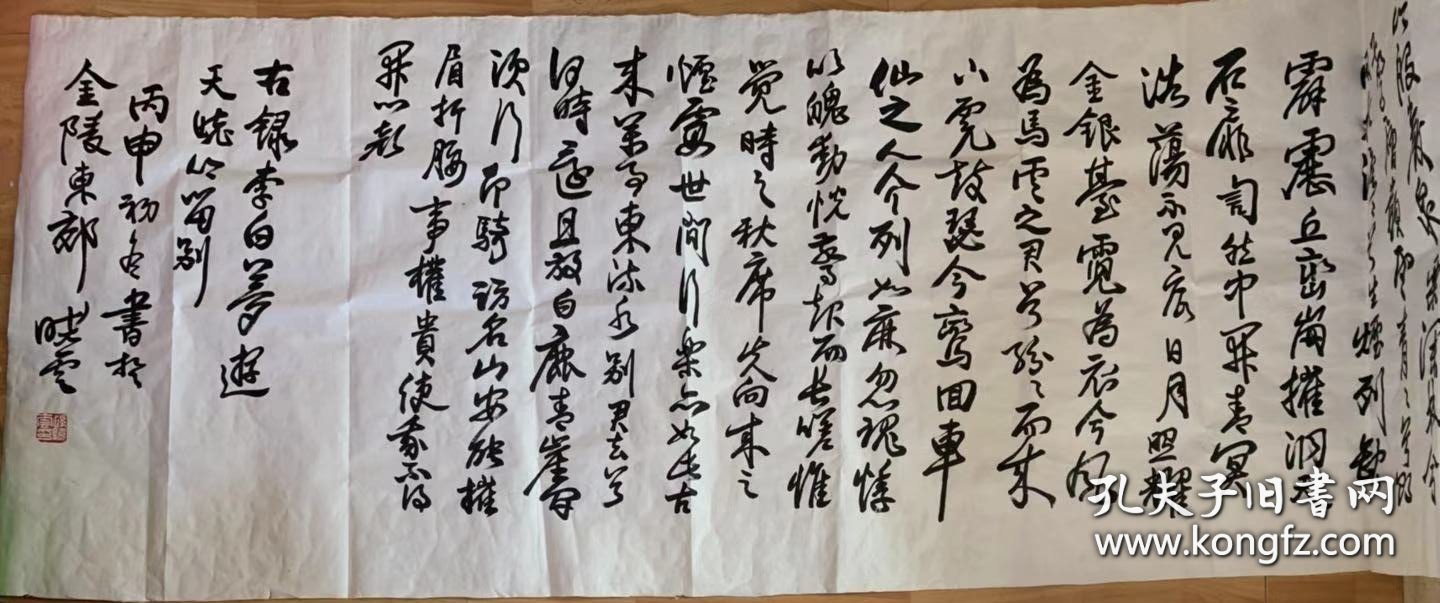 殷巖泉慄深林兮
驚層巔雲青青兮欲
雨水澹々兮生煙列缺
霹靂丘巒崩摧洞天
石扉訇然中開青冥
浩蕩不見底日月照耀
金銀臺霓為衣兮風
為馬雲之君兮紛々而来
下虎鼓瑟兮鸞回車
仙之人兮列如麻忽魂悸
以魄動怳驚起而長嗟惟
覺時之枕席失向来之
煙霞世間行樂亦如此古
来萬事東流水別君去兮
何時還且放白鹿青崖間
須行即騎訪名山安能摧
眉折腰事權貴使我不得
開心顔
右錄李白夢遊
天姥吟留别
丙申初冬書於
金陵東郊 曉雲
孔夫子旧書网
www.kongfz.com